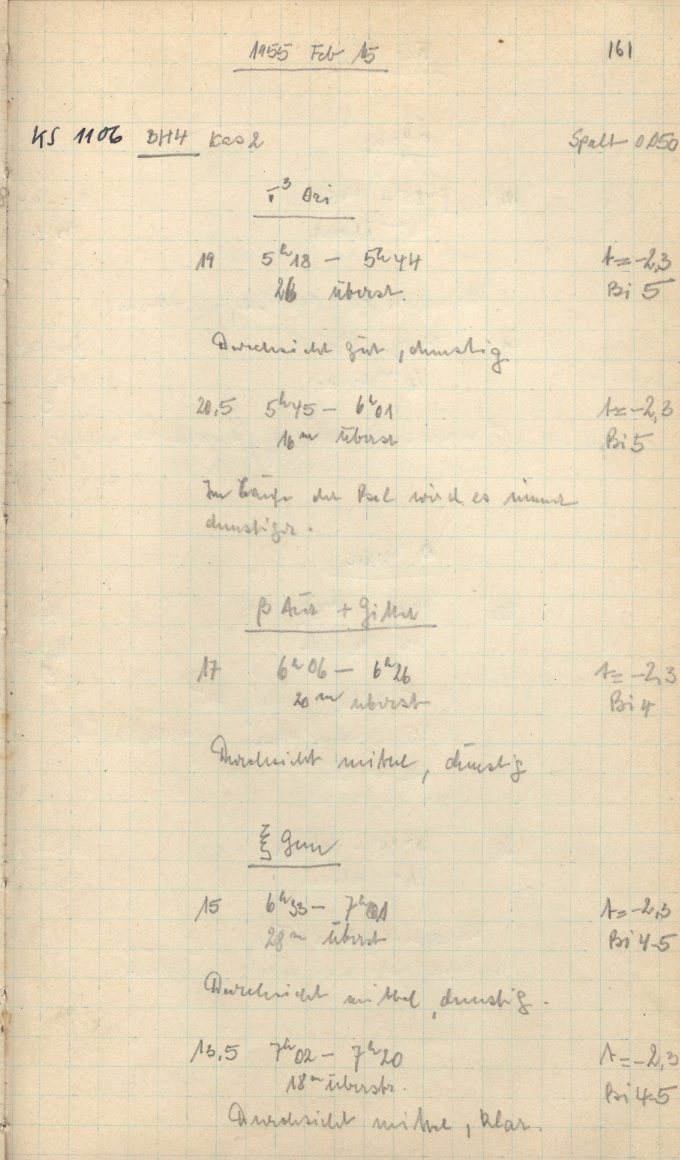 1955 Feb 15 161
KS 1106 BH4 Kas 2 Spalt 0.050
3 Ori
19 5h18 – 5h44 t = -2,3
26 überst. Bi 5
Durchsicht gut, dunstig
20,5 5h45 – 6h01 t = -2,3
16m überst Bi 5
Im Laufe der Bel wird es immer
dunstiger.
β Aur + Gitter
17 6h06 – 6h26 t = -2,3
20m überst Bi 4
Durchsicht mittel, dunstig
ξ Gem
15 6h33 – 7h01 t = -2,3
28m überst Bi 4-5
Durchsicht mittel, dunstig.
13,5 7h02 – 7h20 t = -2,3
18m überstr. Bi 4-5
Durchsicht mittel, klar.